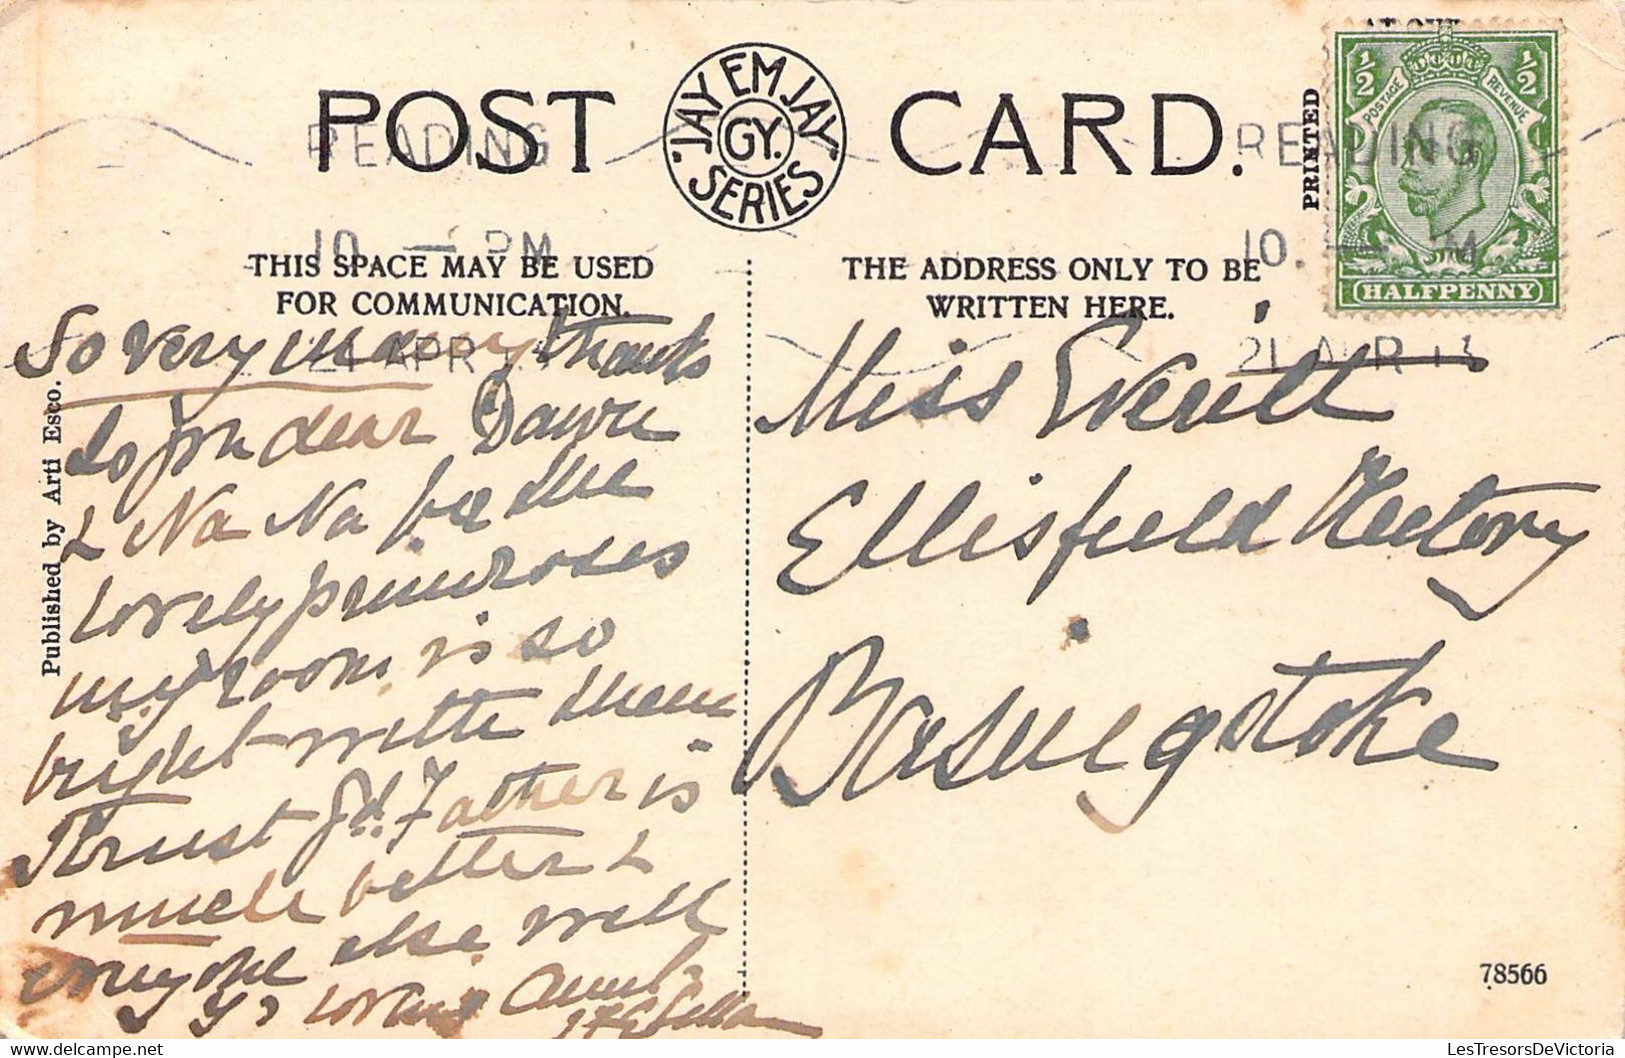 POST CARD.
JAY EM JAY
GY.
SERIES
READING
READING
10. — PM
10. — PM
21 APR
21 APR 13
AT OUR
PRINTED
½ ½
POSTAGE REVENUE
HALFPENNY
THIS SPACE MAY BE USED
FOR COMMUNICATION.
THE ADDRESS ONLY TO BE
WRITTEN HERE.
Published by Arti Esco.
So very many thanks
to you dear
& Na Na for the
lovely primroses
my room is so
bright with them
Trust Gd. Father is
much better &
everyone else well
Yr loving Aunt
Miss Everett
Ellisfield Rectory
Basingstoke
78566
LesTresorsDeVictoria